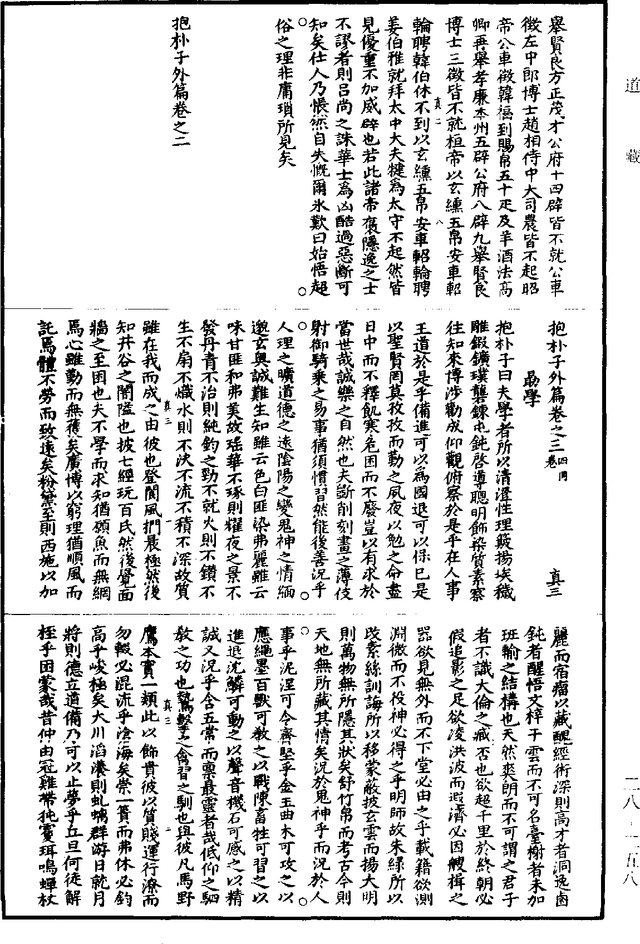 道藏
舉賢良方正茂才公府十四辟皆不就公車
徵左中郎博士趙相侍中大司農皆不起昭
帝公車徵韓福到賜帛五十疋及羊酒法高
卿再舉孝廉本州五辟公府八辟九舉賢良
博士三徵皆不就桓帝以玄纁五帛安車軺
真二 八
輪聘韓伯休不到以玄纁五帛安車軺輪聘
姜伯雅就拜太中大夫犍為太守不起然皆
見優重不加威辟也若此諸帝褒隱逸之士
不謬者則呂尚之誅華士為凶酷過惡斷可
知矣仕人乃悵然自失慨爾永歎曰始悟超
俗之理非庸瑣所見矣
抱朴子外篇卷之二
抱朴子外篇卷之三 四同卷
真三
勗學
抱朴子曰夫學者所以清澄性理簸揚埃穢
雕鍛鑛璞礱鍊屯鈍啓導聰明飾染質素察
往知來博涉勸戒仰觀俯察於是乎在人事
王道於是乎備進可以為國退可以保己是
以聖賢罔莫孜孜而勤之夙夜以勉之命盡
日中而不釋飢寒危困而不廢豈以有求於
當世哉誠樂之自然也夫斲削刻畫之薄伎
射御騎乘之易事猶須慣習然能後善況乎
人理之曠道德之遠陰陽之變鬼神之情緬
邈玄奧誠難生知雖云色白匪染弗麗雖云
味甘匪和弗美故瑶華不琢則耀夜之景不
發丹青不治則純鈞之勁不就火則不鑽不
生不扇不熾水則不決不流不積不深故質
真三 一
雖在我而成之由彼也登閬風捫晨極然後
知井谷之闇隘也披七經玩百氏然後覺面
牆之至困也夫不學而求知猶願魚而無網
焉心雖勤而無獲矣廣博以窮理猶順風而
託焉體不勞而致遠矣粉黛至則西施以加
麗而宿瘤以藏醜經術深則高才者洞逸鹵
鈍者醒悟文梓干雲而不可名臺榭者未加
班輸之結構也天然爽朗而不可謂之君子
者不識大倫之臧否也欲超千里於終朝必
假追影之足欲凌洪波而遐濟必因艘楫之
器欲見無外而不下堂必由之乎載籍欲測
淵微而不役神必得之乎明師故朱綠所以
改素絲訓誨所以移蒙蔽披玄雲而揚大明
則萬物無所隱其狀矣舒竹帛而考古今則
天地無所藏其情矣況於鬼神乎而況於人
事乎泥涅可令齊堅乎金玉曲木可攻之以
應繩墨百獸可教之以戰陳畜牲可習之以
進退沈鱗可動之以聲音機石可感之以精
誠又況乎含五常而稟最靈者哉低仰之駟
教之功也鷙擊之禽習之馴也與彼凡馬野
真三
鷹本實一類此以飾貴彼以質賤運行潦而
勿輟必混流乎滄海矣崇一簣而弗休必鈞
高乎峻極矣大川滔瀁則虬螭群游日就月
將則德立道備乃可以正夢乎丘旦何徒解
桎乎困蒙哉昔仲由冠雞帶㹠霣珥鳴蟬杖
二八－一五八